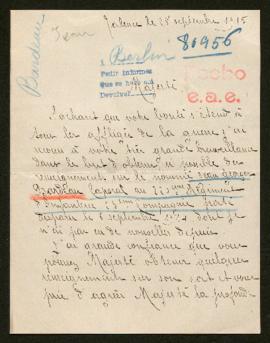 Jean
Bardeau
Talence le 28 septembre 1915
Berlin
80956
Pedir informes
Que se hará así
Devolver
Hecho
e.a.e.
Majesté
Sachant que votre bonté s'étend à
tous les affligés de la guerre, j'ai
recours à votre très grande bienveillance
dans le but d'obtenir si possible des
renseignements sur le nommé Jean
Bardeau caporal au Régiment
d'infanterie compagnie porté
disparu le septembre dont je
n'ai pas eu de nouvelles depuis
J'ai grande confiance que vous
pouvez Majesté obtenir quelques
renseignements sur son sort et vous
prie d'agréer Majesté la profonde